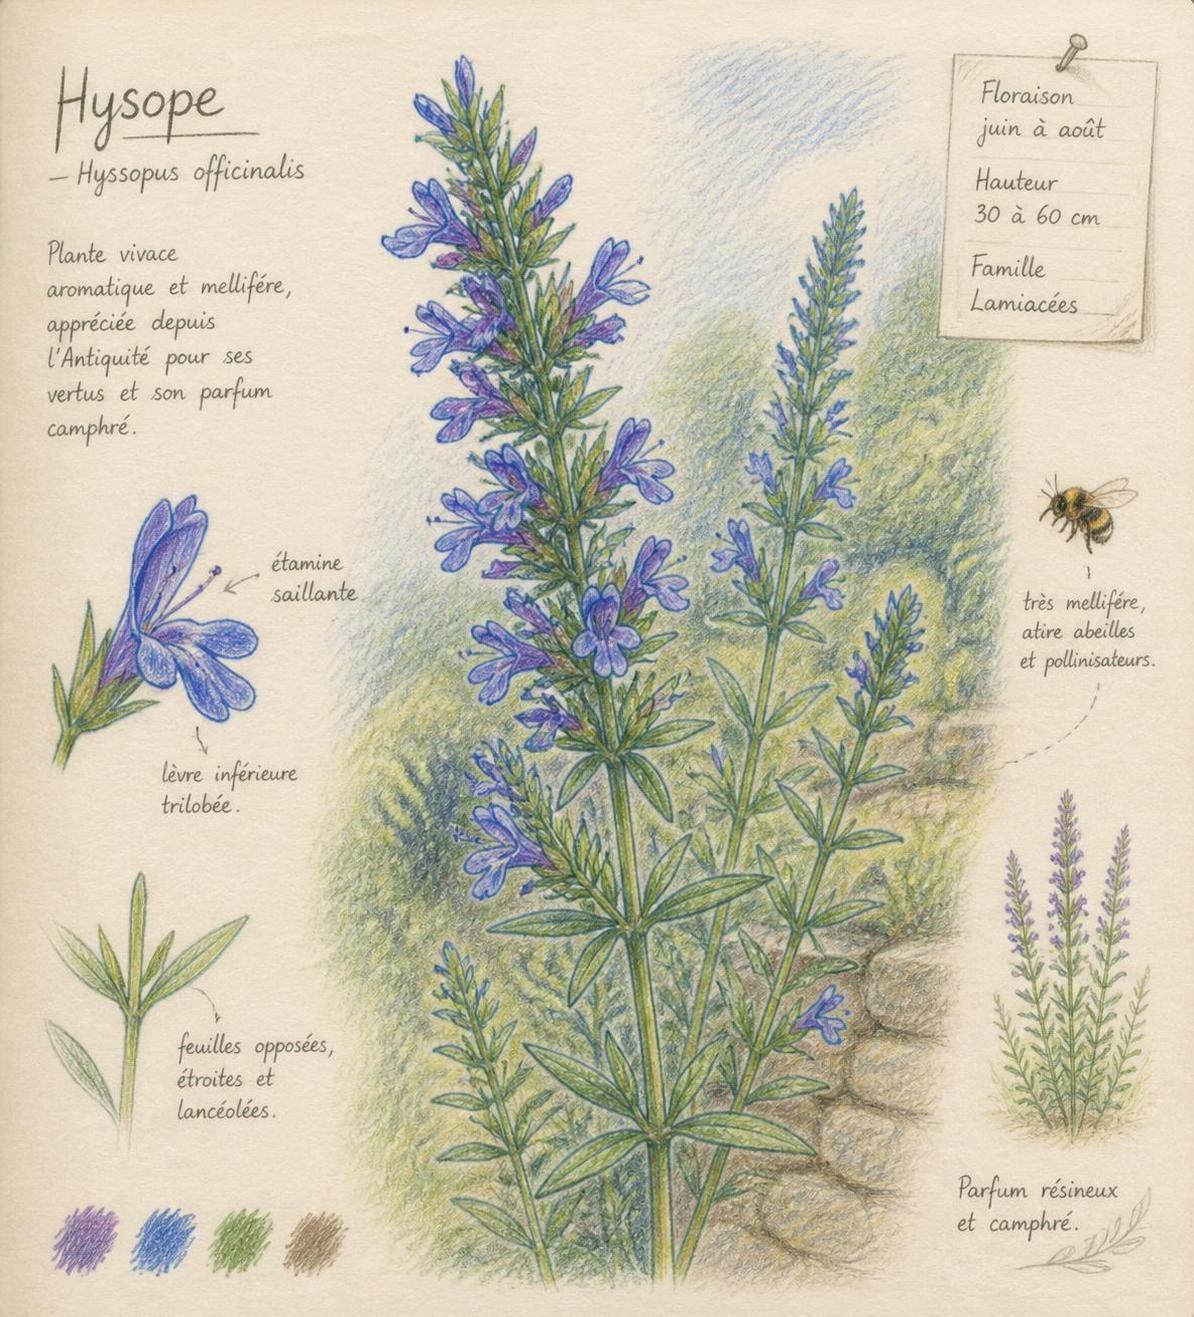 Hysope
– Hyssopus officinalis
Plante vivace
aromatique et mellifére,
appréciée depuis
l'Antiquité pour ses
vertus et son parfum
camphré.
étamine
saillante
lèvre inférieure
trilobée.
feuilles opposées,
étroites et
lancéolées.
Floraison
juin à août
Hauteur
30 à 60 cm
Famille
Lamiacées
très mellifére,
atire abeilles
et pollinisateurs.
Parfum résineux
et camphré.